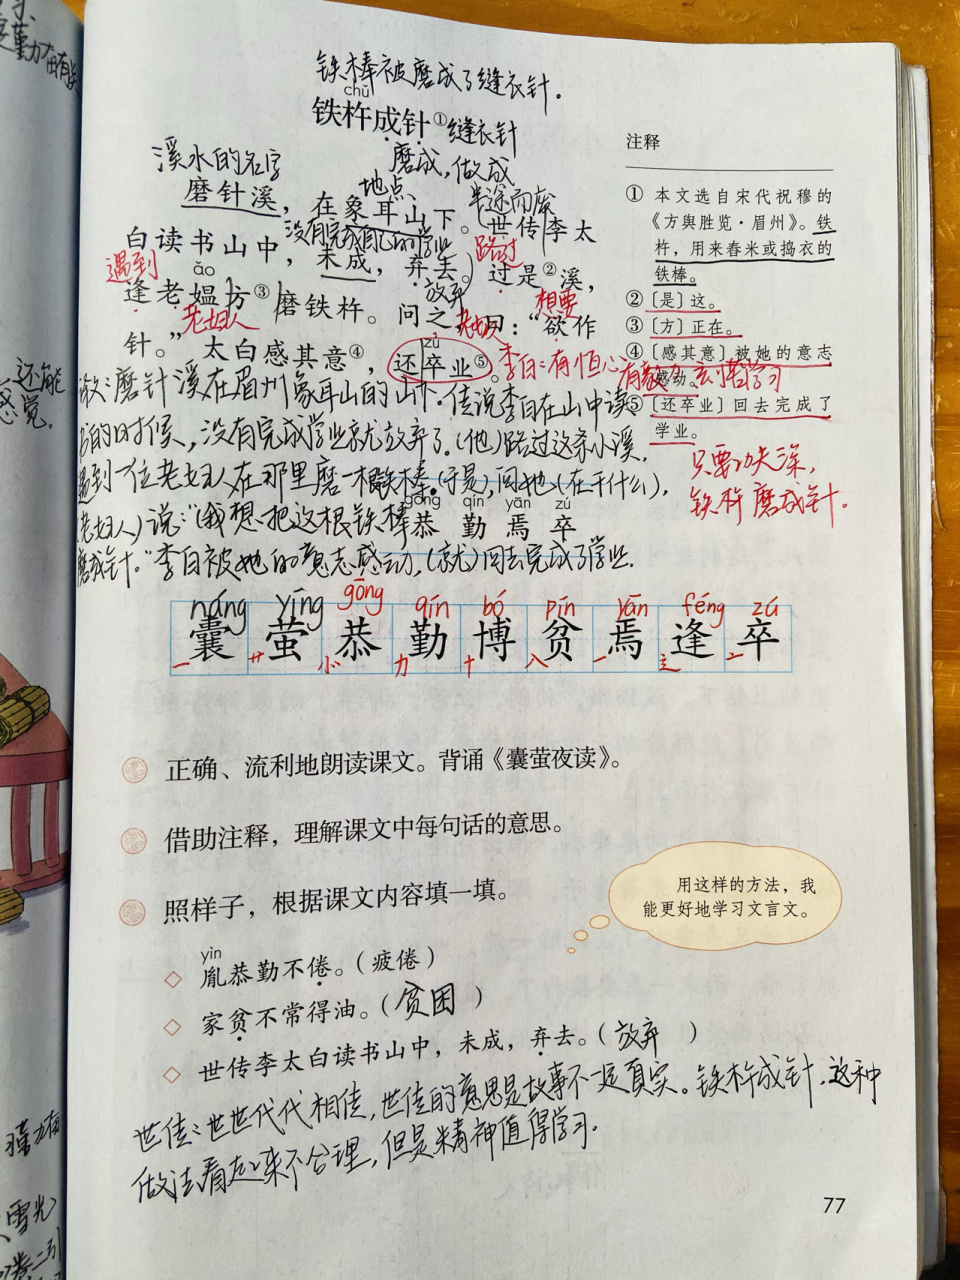 铁棒被磨成了缝衣针。
chǔ
铁杵成针①缝衣针
磨成,做成
溪水的名字
地点
半途而废
磨针溪,在象耳山下。世传李太
没有完成自己的学业
路过
白读书山中,未成,弃去。过是②溪,
遇到
ǎo
放弃
想要
逢老媪方③磨铁杵。问之,曰:“欲作
老妇人
老妇人
zú
针。”太白感其意④,还卒业⑤。
李白:有恒心
有毅力
刻苦学习
磨针溪在眉州象耳山的山下。传说李白在山中读
书的时候,没有完成学业就放弃了。(他)路过这条小溪,
遇到一位老妇人在那里磨一根铁棒。(于是),问她(在干什么),
老妇人)说:“(我想把这根铁棒
磨成针。”李白被她的意志感动,(就)回去完成了学业.
gōng qín yān zú
恭 勤 焉 卒
náng yíng gōng qín bó pín yān féng zú
囊 萤 恭 勤 博 贫 焉 逢 卒
正确、流利地朗读课文。背诵《囊萤夜读》。
借助注释,理解课文中每句话的意思。
照样子,根据课文内容填一填。
用这样的方法,我
能更好地学习文言文。
yìn
胤恭勤不倦。(疲倦)
家贫不常得油。(贫困)
世传李太白读书山中,未成,弃去。(放弃)
世传:世世代代相传,世传的意思是故事不一定真实。铁杵成针,这种
做法看起来不合理,但是精神值得学习.
77
注释
① 本文选自宋代祝穆的
《方舆胜览·眉州》。铁
杵,用来舂米或捣衣的
铁棒。
②〔是〕这。
③〔方〕正在。
④〔感其意〕被她的意志
感动。
⑤〔还卒业〕回去完成了
学业。
只要功夫深,
铁杵磨成针。
还能
感觉.
雪光